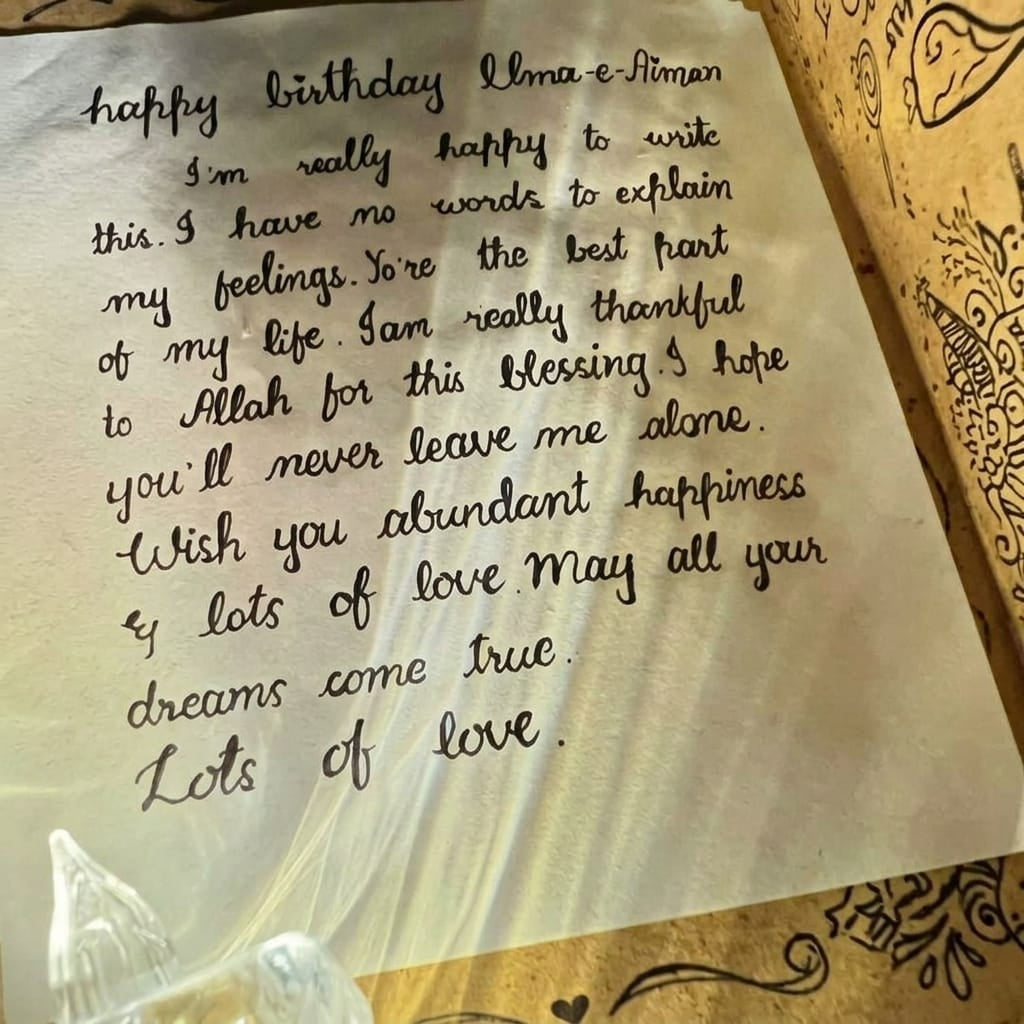 happy birthday Ilma-e-Aiman
I'm really happy to write
this. I have no words to explain
my feelings. Yo're the best part
of my life. Iam really thankful
to Allah for this blessing. I hope
you'll never leave me alone.
Wish you abundant happiness
& lots of love. May all your
dreams come true.
Lots of love.